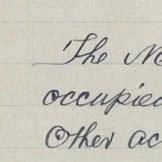 The
occupied
Other